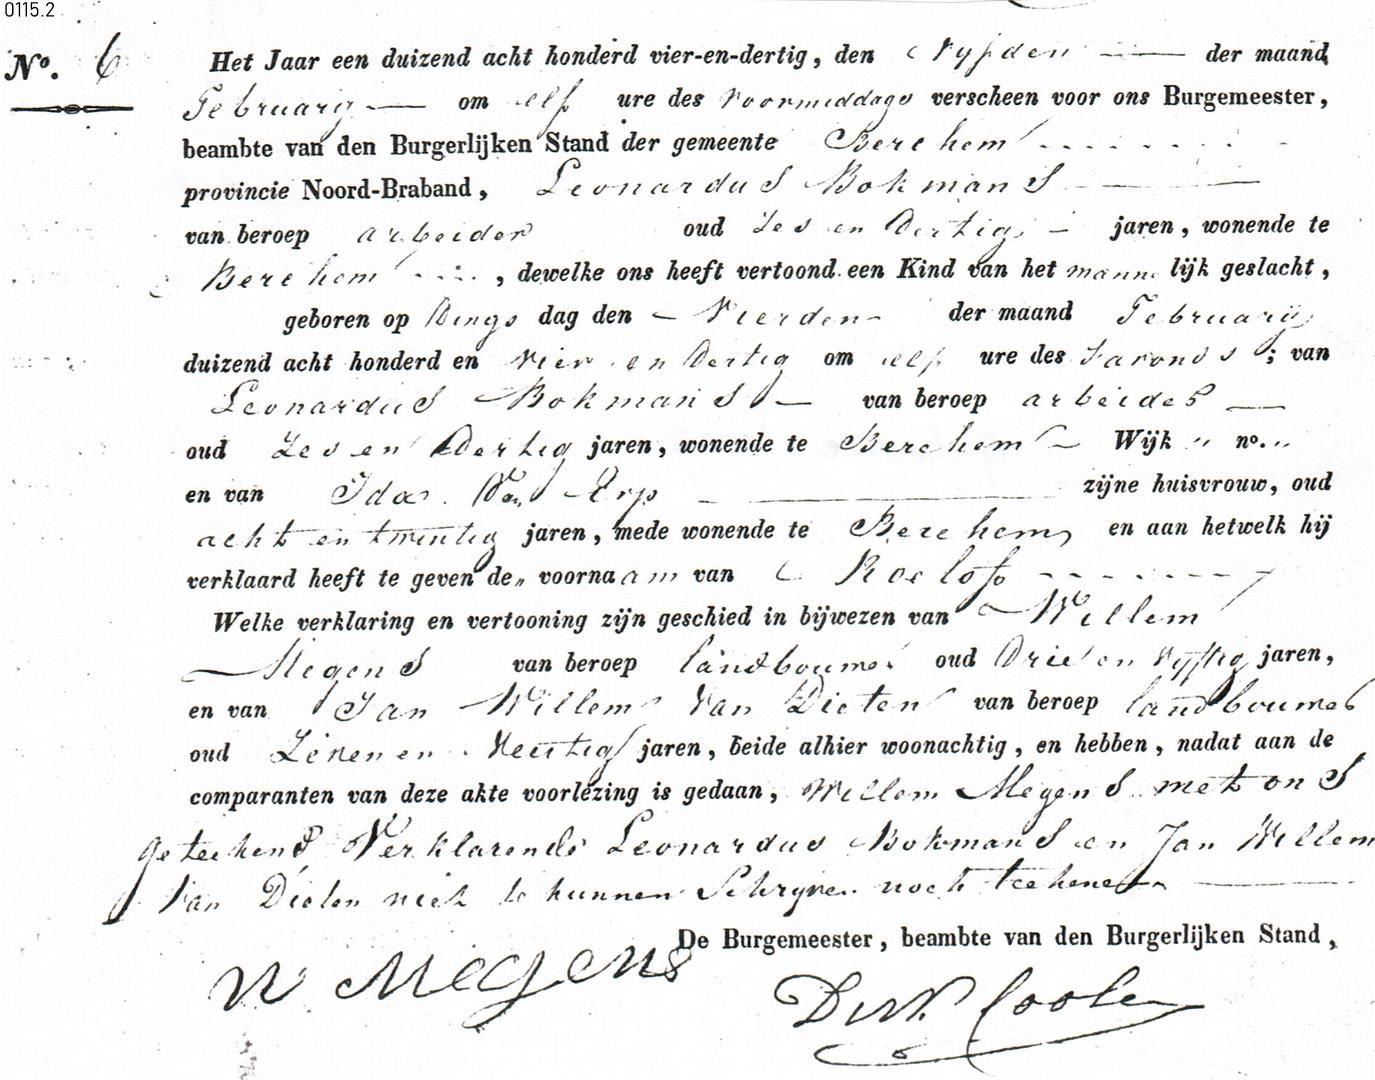 0115.2
No. 6 Het Jaar een duizend acht honderd vier-en-dertig, den Vyfden der maand
February om elf ure des voormiddags verscheen voor ons Burgemeester,
beambte van den Burgerlijken Stand der gemeente Berchem
provincie Noord-Braband, Leonardus Bokmans
van beroep arbeider oud Zes en Dertig jaren, wonende te
Berchem, dewelke ons heeft vertoond een Kind van het mannelijk geslacht,
geboren op Dingsdag den Vierden der maand February
duizend acht honderd en vier en Dertig om elf ure des savonds; van
Leonardus Bokmans van beroep arbeider
oud Zes en Dertig jaren, wonende te Berchem Wijk " no. "
en van Ida Van Erp zijne huisvrouw, oud
acht en twintig jaren, mede wonende te Berchem en aan hetwelk hij
verklaard heeft te geven de" voornaam van Roelof
Welke verklaring en vertooning zijn geschied in bijwezen van Willem
Megens van beroep landbouwer oud Drie en vyftig jaren,
en van Jan Willem Van Dieten van beroep landbouwer
oud Zeven en Veertig jaren, beide alhier woonachtig, en hebben, nadat aan de
comparanten van deze akte voorlezing is gedaan, Willem Megens met ons
geteekend Verklarende Leonardus Bokmans en Jan Willem
Van Dieten niet te kunnen Schryven noch teekenen
De Burgemeester, beambte van den Burgerlijken Stand,
W Megens
Dirk